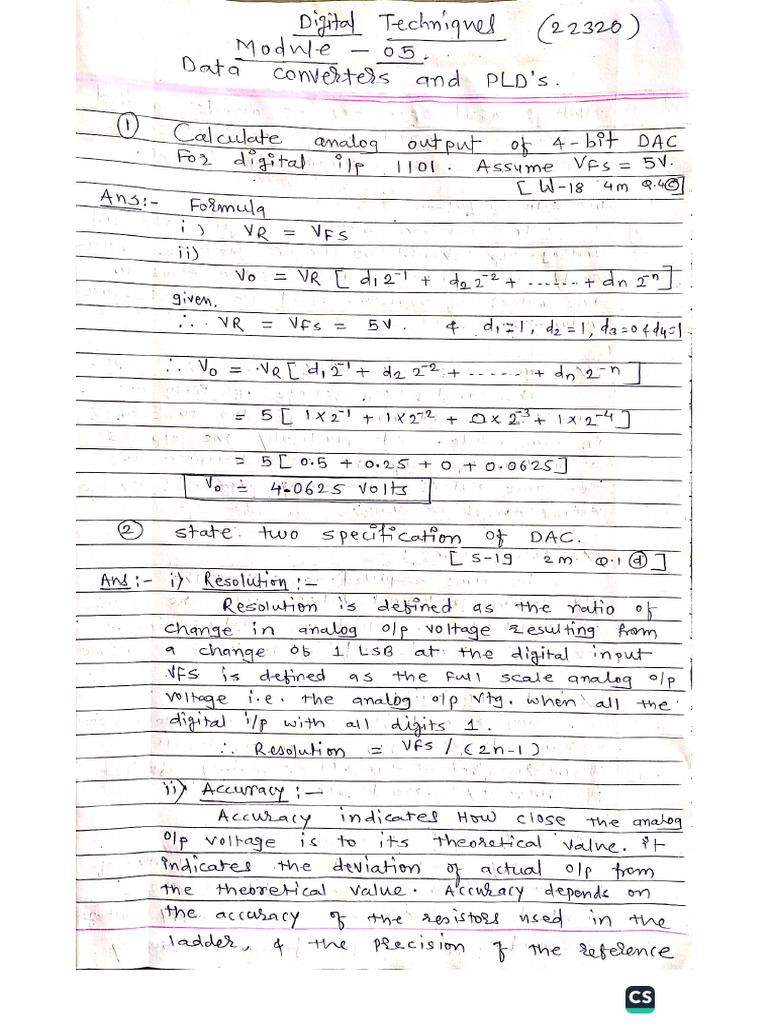 Digital Techniques (22320)
Module - 05.
Data converters and PLD's.
① Calculate analog output of 4-bit DAC
For digital i/p 1101. Assume VFS = 5V.
[W-18 4m Q.4 ⓒ]
Ans:- Formula
i) VR = VFS
ii)
Vo = VR [d₁2⁻¹ + d₂2⁻² + ....... + dn 2⁻ⁿ]
given,
∴ VR = VFS = 5V. & d₁=1, d₂=1, d₃=0 & d₄=1
∴ Vo = VR [d₁2⁻¹ + d₂ 2⁻² + ------ + dn 2⁻ⁿ]
= 5 [1×2⁻¹ + 1×2⁻² + 0×2⁻³ + 1×2⁻⁴]
= 5 [0.5 + 0.25 + 0 + 0.0625]
Vo = 4.0625 volts
② state two specification of DAC.
[S-19 2m Q.1 ⓓ]
Ans:- i) Resolution:-
Resolution is defined as the ratio of
change in analog o/p voltage resulting from
a change of 1 LSB at the digital input
VFS is defined as the full scale analog o/p
voltage i.e. the analog o/p vtg. when all the
digital i/p with all digits 1.
∴ Resolution = VFS / (2n-1)
ii) Accuracy:-
Accuracy indicates How close the analog
o/p voltage is to its theoretical value. it
indicates the deviation of actual o/p from
the theoretical value. Accuracy depends on
the accuracy of the resistors used in the
ladder, & the precision of the reference
CS